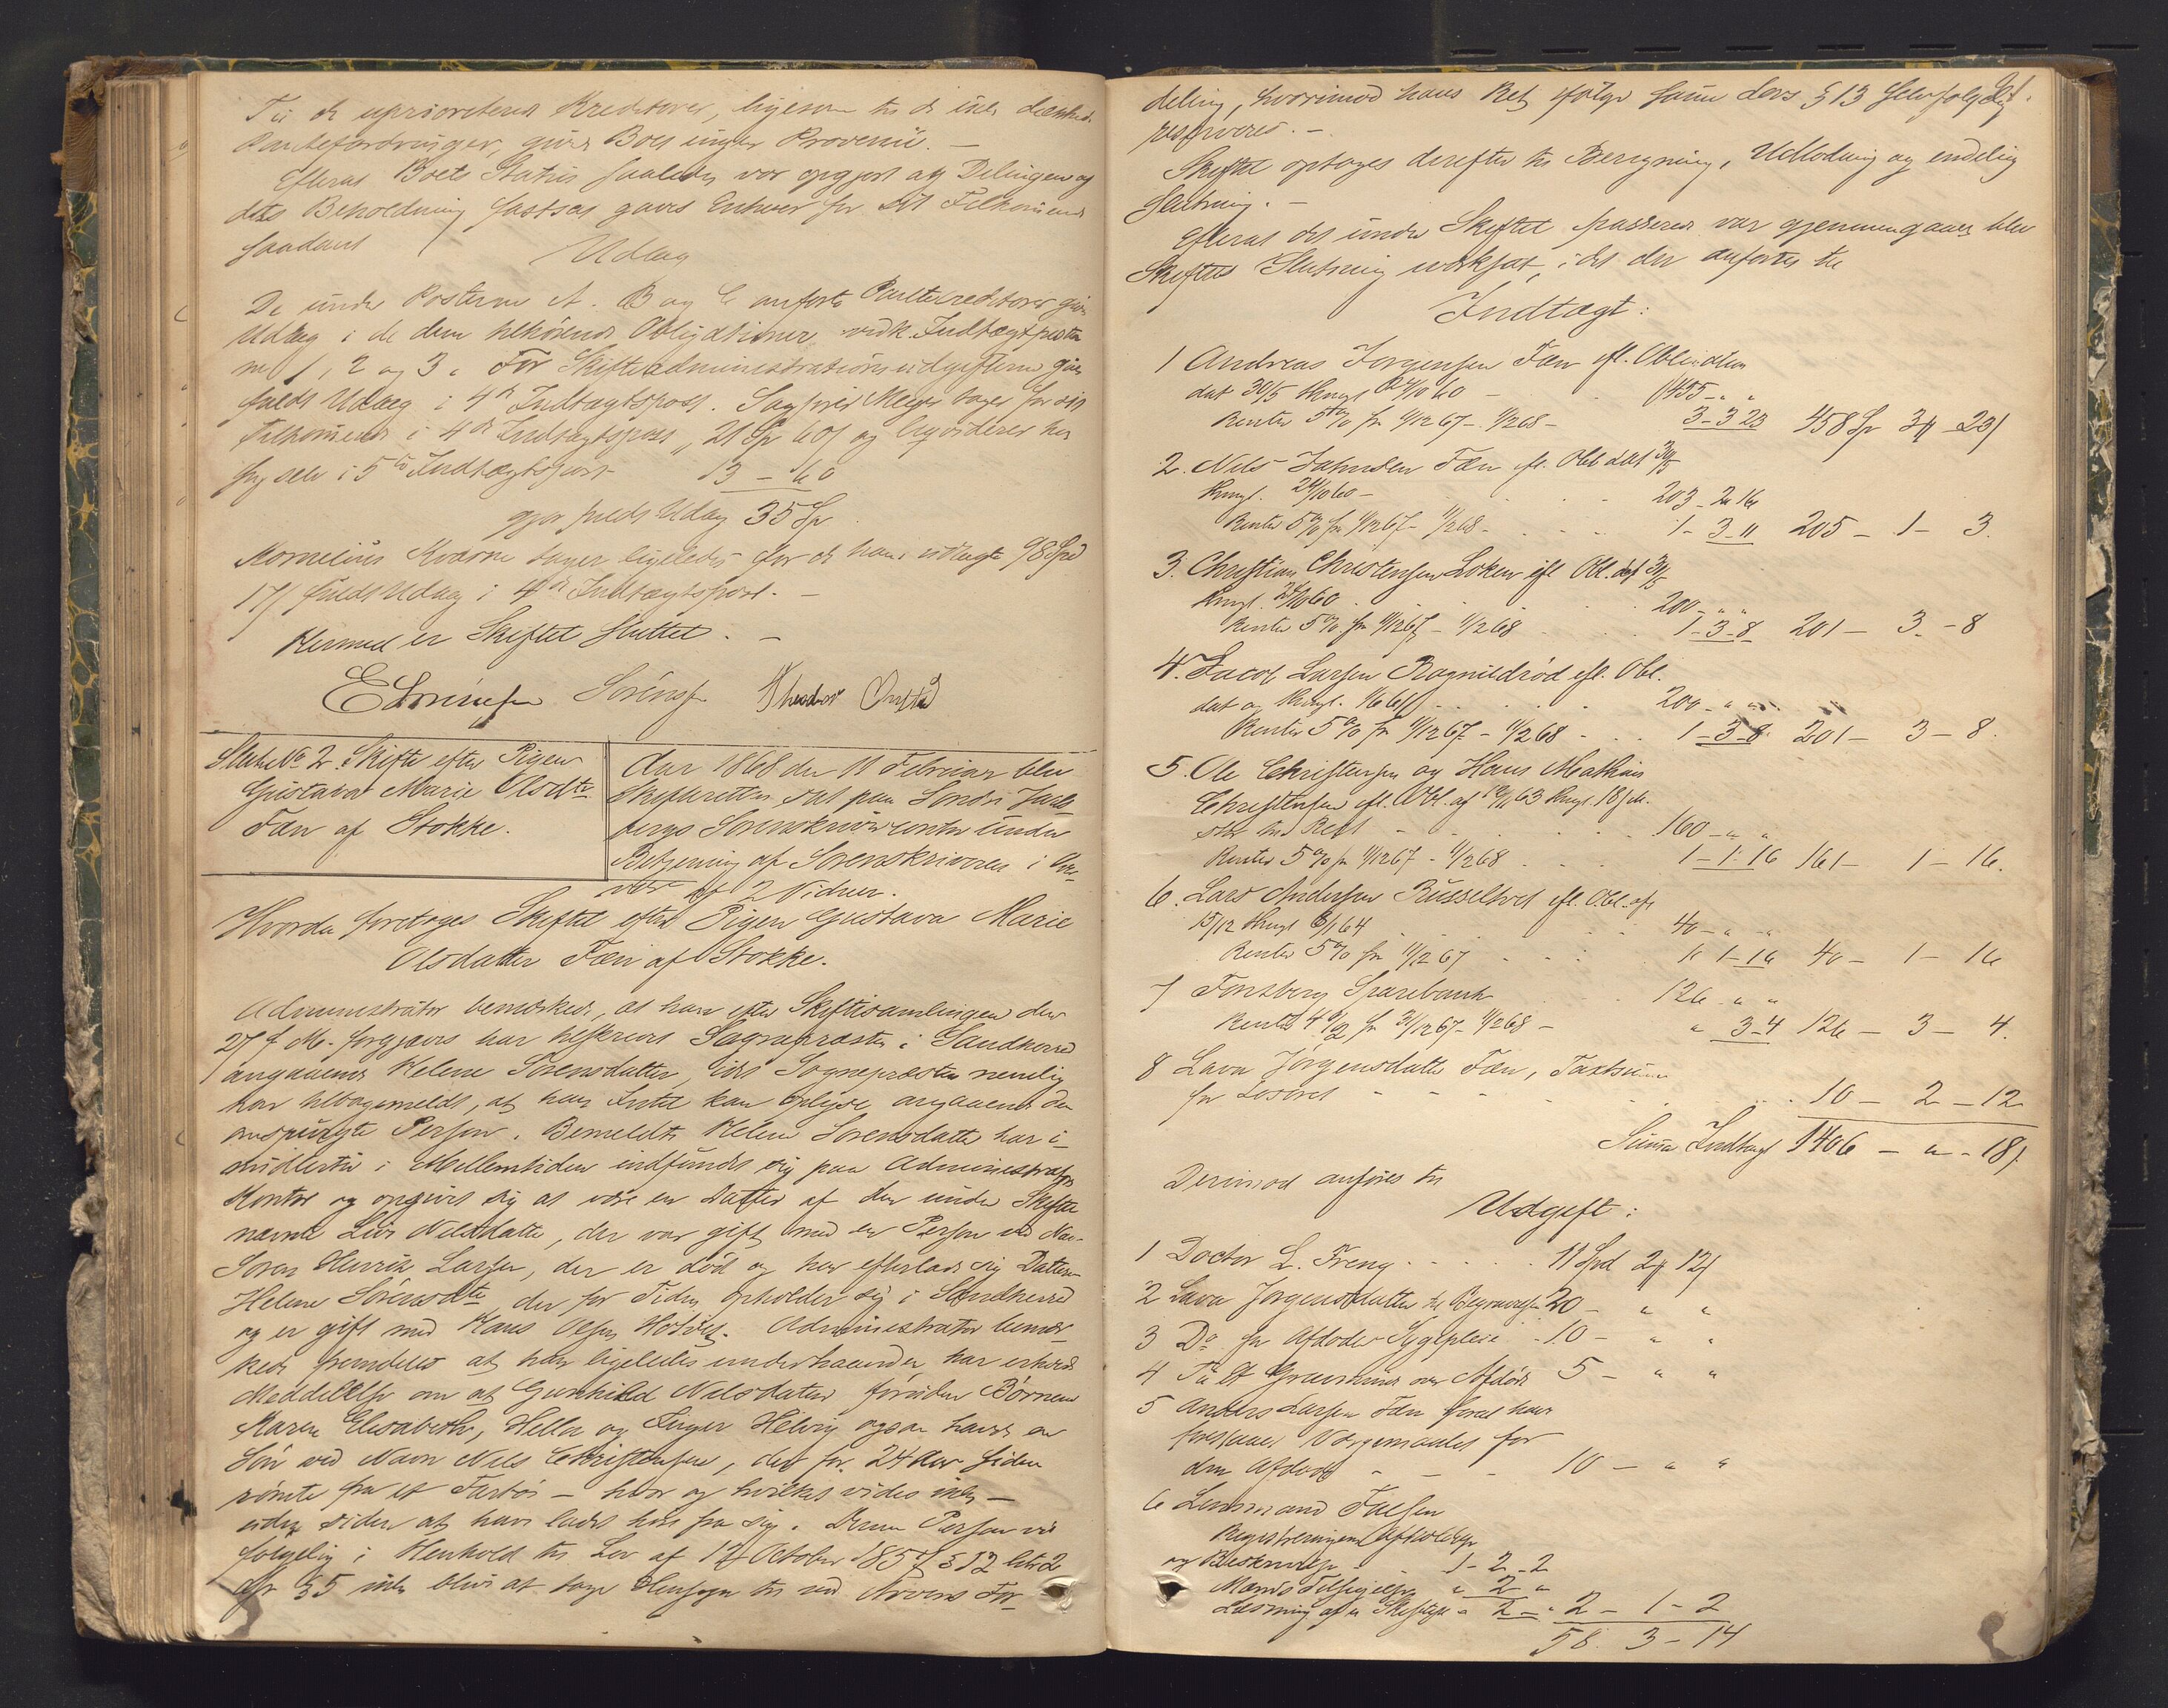 Til de uprioriterede Kreditorer, ligesom til de ikke dækkede
Pantefordringer, giver Boet ingen Provenü. —
Efterat Boets Status saaledes var opgjort og Delingen og
dets Beholdning fastsat gaves Enhver for sit Tilkommende
saadant
Udlæg
De under Posterne A. B og C anførte Pantecreditorer gives
Udlæg i de dem tilhørende Obligationer vedk. Indtægtsposter
ne 1, 2 og 3. For Skifteadministrationsudgifterne gives
fuldt Udlæg i 4de Indtægtspost. Sagfører Meyer tager for sit
Tilkommende i 4de Indtægtspost, 21 Sp 60 og liqviderer hos
sig selv i 5te Indtægtspost 13 — 60
gjør fuldt Udlæg 35 Sp
Kornelius Kværne tager ligeledes for de ham udlagte 98 Spd
17 fuldt Udlæg i 4de Indtægtspost. —
Hermed er Skiftet sluttet. —
E Sørensen Sørensen Theodor
Slutn No 2. Skifte efter Pigen
Gustava Marie Olsdtr
Fæn af Stokke.
Aar 1868 den 11 Februar blev
Skifteretten sat paa Søndre Jarls
bergs Sorenskrivercontor under
Betjening af Sorenskriveren i Over
vær af 2 Vidner.
Hvorda foretoges Skiftet efter Pigen Gustava Marie
Olsdatter Fæn af Stokke.
Administrator bemærkede, at han efter Skiftesamlingen den
27 f. M. forgjæves har tilskrevet Sognepræsten i Sandherred
angaaende Helene Sørensdatter, idet Sognepræsten nemlig
har tilbagemeldt, at han Intet kan oplyse angaaende den
omspurgte Person. Bemeldte Helene Sørensdatter har i-
midlertid i Mellemtiden indfundet sig paa Administrators
Kontor og opgivet sig at være en Datter af den under Skiftet
nævnte Live Nilsdatter, der var gift med en Person ved Navn
Søren Henrik Larsen, der er død og har efterladt sig Datteren
Helene Sørensdtr der for Tiden opholder sig i Sandherred
og er gift med Hans Olsen. Administrator bemær
kede fremdeles at han ligeledes underhaanden har erholdt
Meddelelse om at Gunhild Nilsdatter foruden Børnene
Maren Elisabeth, Hella og Inger Helvig ogsaa havde en
Søn ved Navn Nils Christensen, der for 24 Aar siden
rømte fra et Fartøi — hvor og hvilket vides ikke —
uden siden at have ladet høre fra sig. Denne Person vil
følgelig i Henhold til Lov af 12 October 1857 § 12 litr 2
cfr § 5 ikke blive at tage Hensyn til ved Arvens For-
deling, hvorimod hans Ret ifølge samme Lovs § 13
reserveres. —
Skiftet optoges derefter til Beregning, Udlodning og endelig
Slutning. —
Efterat det under Skiftet passerede var gjennemgaaet blev
Skiftets Slutning iværksat, idet der anførtes til
Indtægt:
1 Andreas Jørgensen Fæn efl. Obligation
dat 30/5 thingl 24/10 60 — 455 - " "
Renter 5% fra 11/12 67 - 11/2 68 — 3-3 23 458 Sp 3 — 23
2. Nils Johnsen Fæn efl. Obl dat 30/5
thingl. 24/10 60 — 203 - 2 16
Renter 5% fra 11/12 67 - 11/2 68 - 1 - 3 - 11 205 — 1 — 3.
3. Christian Christensen Løken efl Obl. dat 31/5
thingl. 24/10 60 . . . 200 - " "
Renter 5% fra 11/12 67 - 11/2 68 . 1 - 3 - 8 201 — 3 - 8
4. Jacob Larsen Ragnildrød efl. Obl.
dat og thingl. 1/6 61 . . . 200 - " "
Renter 5% fra 11/12 67 - 11/2 68 - . . 1 - 3 - 8 201 — 3 — 8.
5. Ole Christensen og Hans Mathias
Christensen efl. Obl. af 12/11 63 thingl. 18 s. M.
160 - " "
Renter 5% fra 11/12 67 - 11/2 68 . . . 1 - 1 - 16 161 — 1 — 16.
6. Lars Andersen Russeltvedt efl. Obl. af
15/12 thingl 8/1 64 40 - " "
Renter 5% fra 11/12 67 . . . " 1 - 16 40 — 1 — 16
7 Tønsberg Sparebank 126 - " "
Renter 4 1/2 fra 31/12 67 - 11/2 68 — " 3 - 4 126 — 3 — 4.
8 Lava Jørgensdatter Fæn, Taxtsum
for Løsøret - - - . . 10 — 2 — 12
Summa Indtægt 1406 — " - 18
Derimod anføres til
Udgift:
1 Doctor L. Freng . . . . . 11 Spd 2 12
2 Lava Jørgensdatter til Begravelsen 20 — " "
3 Do for Afdødes Sygepleie - 10 — " "
4 Til et Gravminde over Afdøde 5 — " "
5 Anders Larsen Fæn forat have
forestaaet Værgemaalet for
den Afdøde - - - 10 — " "
6 Lensmand Falsen
Registreringens Afholdelse
og Beskrivelse - 1 - 2 - 2
Mænds Tilsigelse " 2 "
Læsning af et Skiftet " 2 — " 2 — 1 - 2
58. 3 — 14